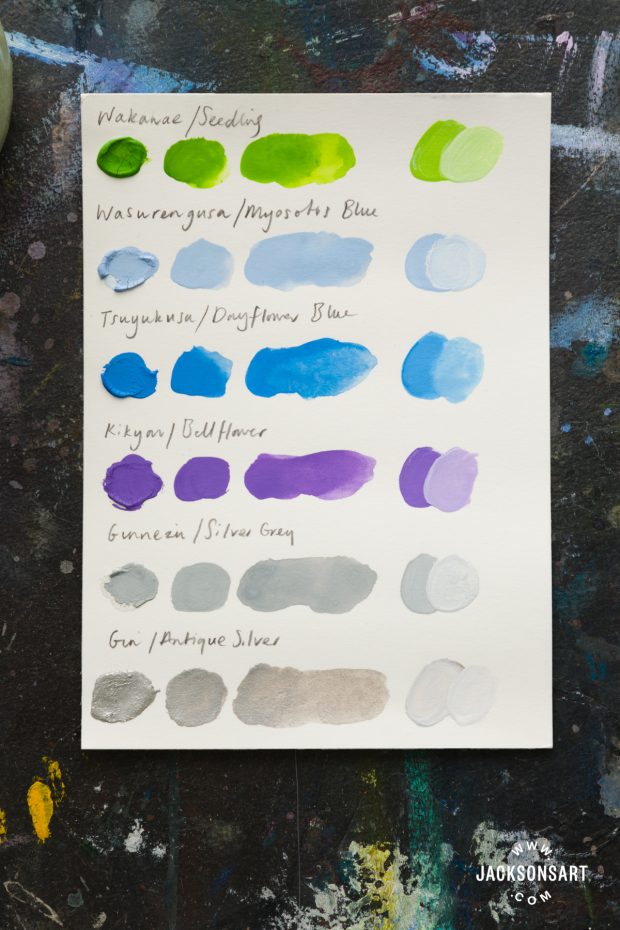 Wakanae/Seedling
Wasurengusa/Myosotos Blue
Tsuyukusa/Dayflower Blue
Kikyou/Bellflower
Ginnezu/Silver Grey
Gin/Antique Silver
WWW
JACKSONSART
.COM